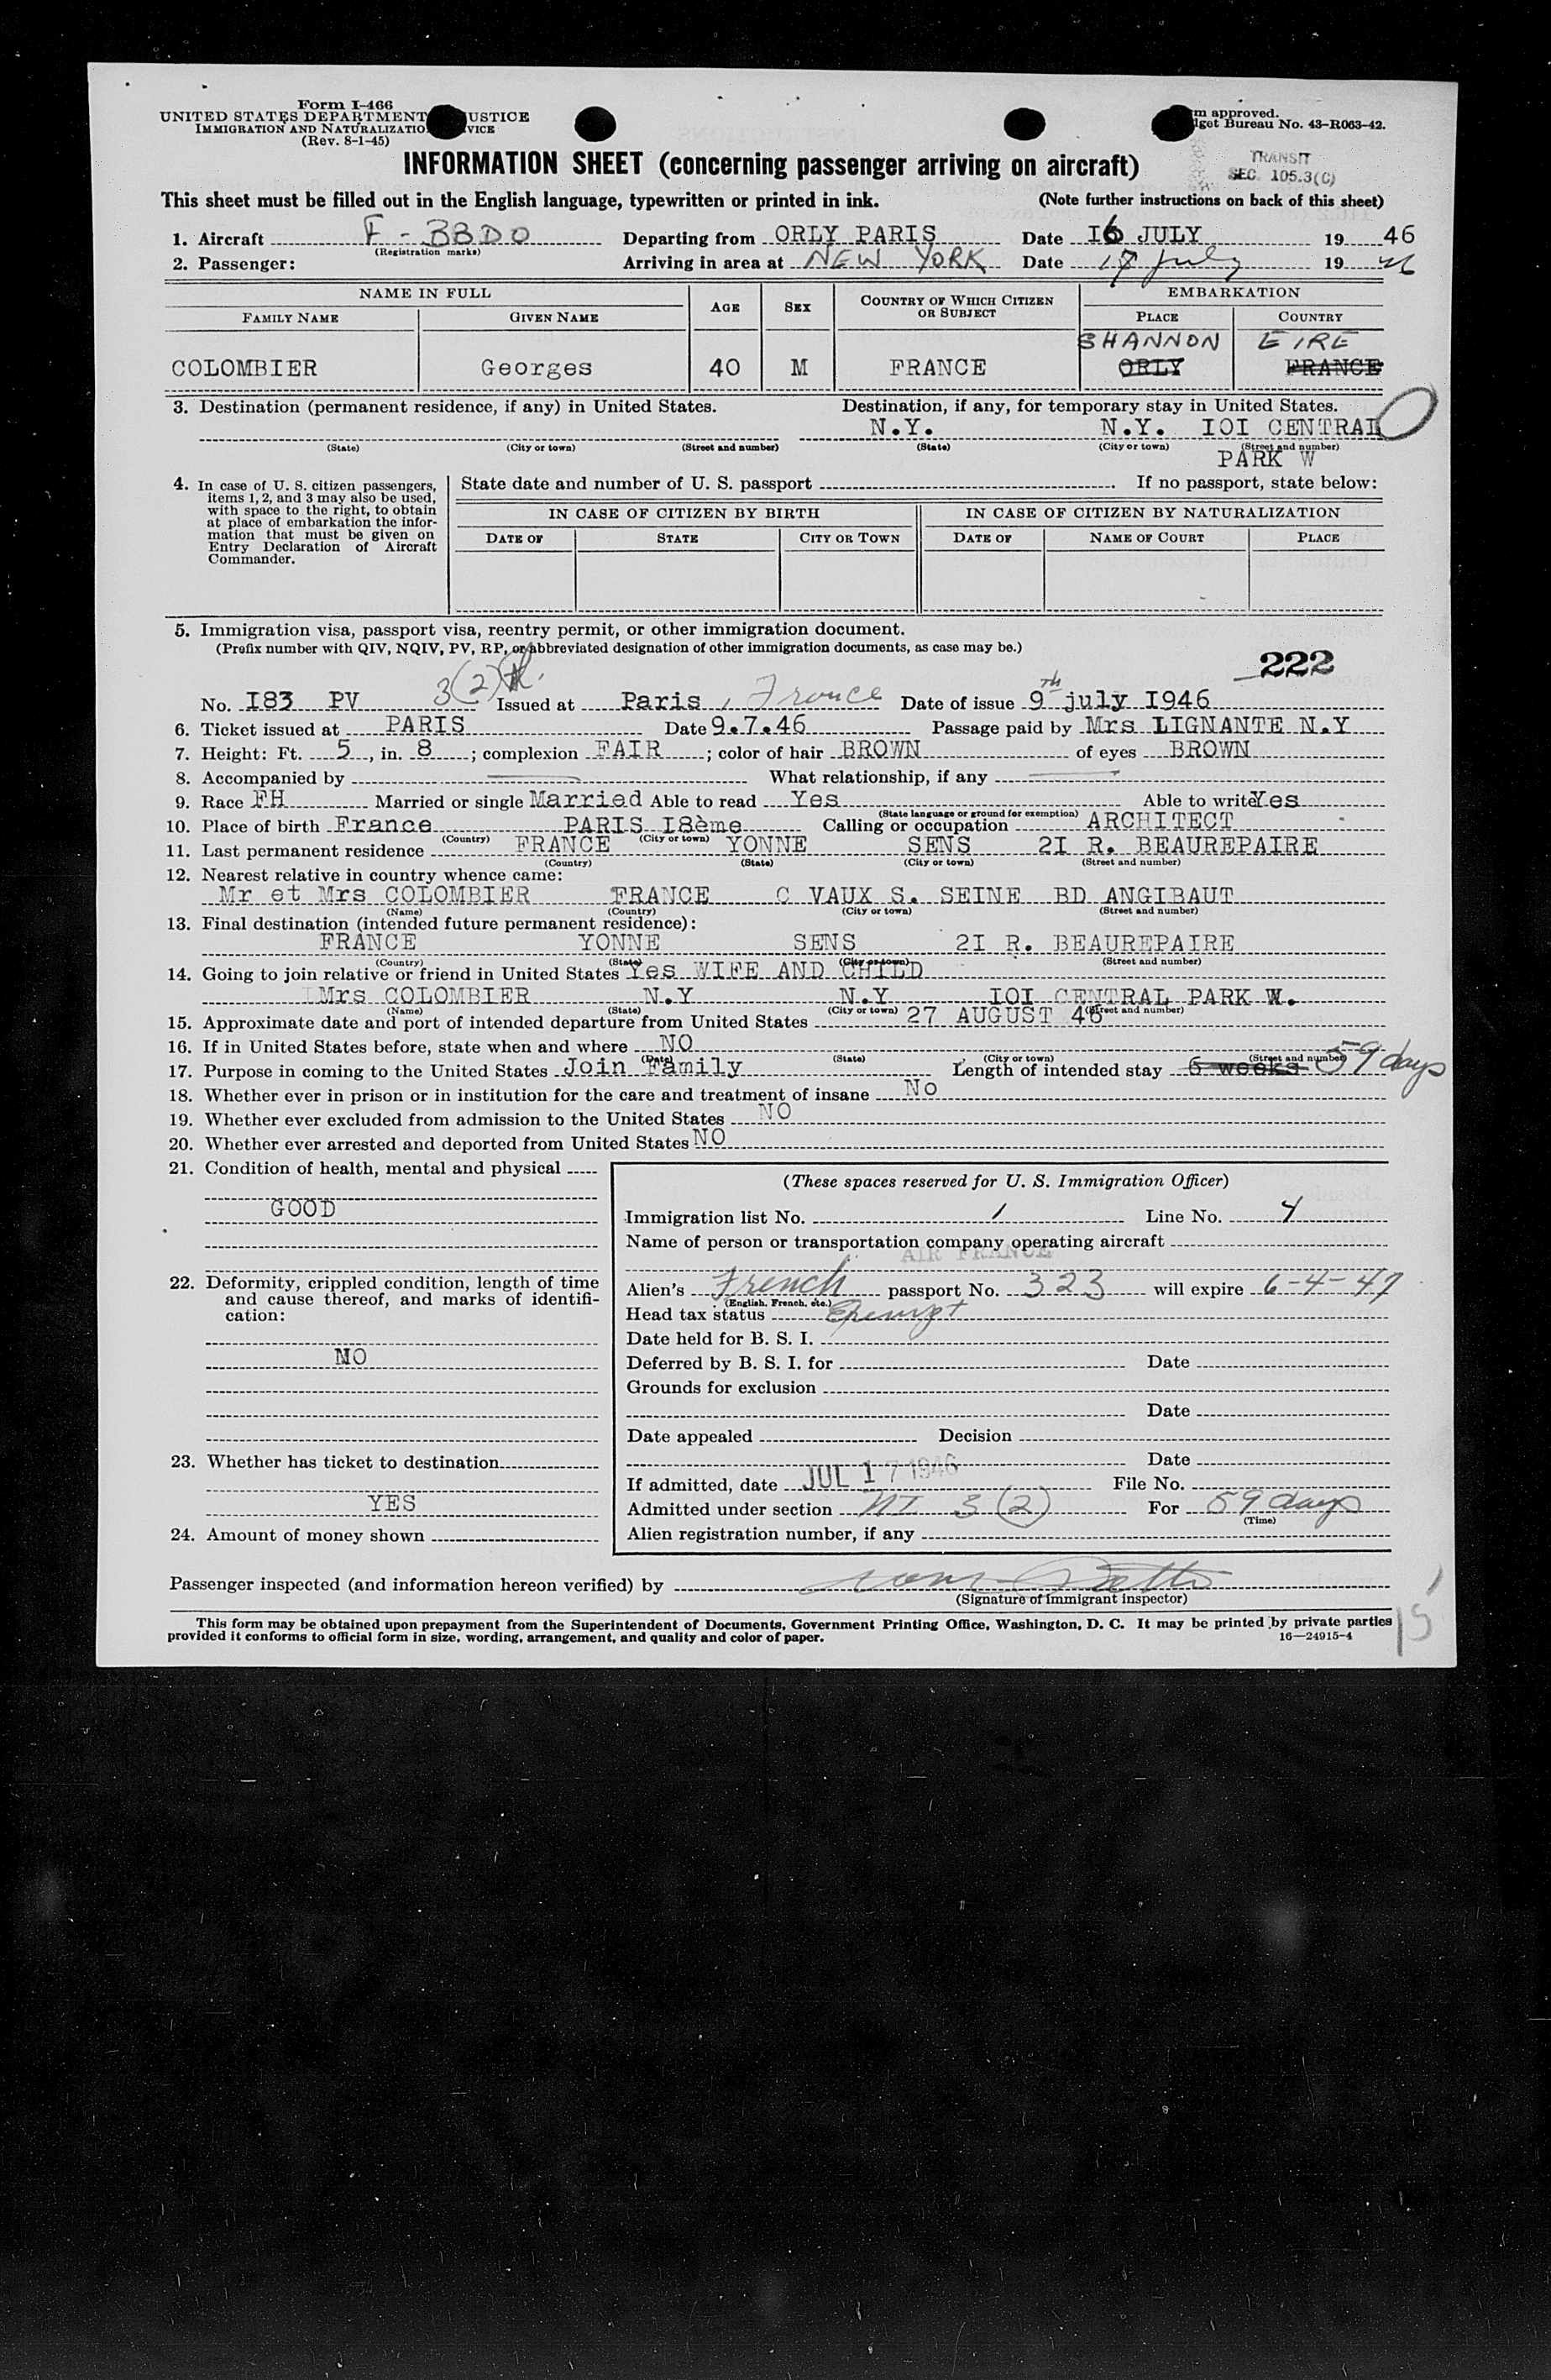 Form I-466
UNITED STATES DEPARTMENT USTICE
IMMIGRATION AND NATURALIZATIO VICE
(Rev. 8-1-45)
m approved.
dget Bureau No. 43-R063-42.
INFORMATION SHEET (concerning passenger arriving on aircraft)
TRANSIT
SEC. 105.3(C)
This sheet must be filled out in the English language, typewritten or printed in ink. (Note further instructions on back of this sheet)
1. Aircraft F - BBDO Departing from ORLY PARIS Date I6 JULY 19 46
(Registration marks)
2. Passenger: Arriving in area at NEW YORK Date 17 July 19 46
NAME IN FULL AGE SEX COUNTRY OF WHICH CITIZEN OR SUBJECT EMBARKATION
FAMILY NAME GIVEN NAME PLACE COUNTRY
SHANNON EIRE
COLOMBIER Georges 40 M FRANCE ORLY FRANCE
3. Destination (permanent residence, if any) in United States. Destination, if any, for temporary stay in United States.
N.Y. N.Y. IOI CENTRAL
(State) (City or town) (Street and number) (State) (City or town) (Street and number)
PARK W
4. In case of U. S. citizen passengers, items 1, 2, and 3 may also be used, with space to the right, to obtain at place of embarkation the information that must be given on Entry Declaration of Aircraft Commander.
State date and number of U. S. passport If no passport, state below:
IN CASE OF CITIZEN BY BIRTH IN CASE OF CITIZEN BY NATURALIZATION
DATE OF STATE CITY OR TOWN DATE OF NAME OF COURT PLACE
5. Immigration visa, passport visa, reentry permit, or other immigration document.
(Prefix number with QIV, NQIV, PV, RP, or abbreviated designation of other immigration documents, as case may be.)
222
3(2)
No. I83 PV Issued at Paris, France Date of issue 9th july I946
6. Ticket issued at PARIS Date 9.7.46 Passage paid by Mrs LIGNANTE N.Y
7. Height: Ft. 5, in. 8; complexion FAIR; color of hair BROWN of eyes BROWN
8. Accompanied by What relationship, if any
9. Race FH Married or single Married Able to read Yes Able to write Yes
(State language or ground for exemption)
10. Place of birth France PARIS I8ème Calling or occupation ARCHITECT
(Country) (City or town)
11. Last permanent residence FRANCE YONNE SENS 2I R. BEAUREPAIRE
(Country) (State) (City or town) (Street and number)
12. Nearest relative in country whence came:
Mr et Mrs COLOMBIER FRANCE C VAUX S. SEINE BD ANGIBAUT
(Name) (Country) (City or town) (Street and number)
13. Final destination (intended future permanent residence):
FRANCE YONNE SENS 2I R. BEAUREPAIRE
(Country) (State) (City or town) (Street and number)
14. Going to join relative or friend in United States Yes WIFE AND CHILD
Mrs COLOMBIER N.Y N.Y IOI CENTRAL PARK W.
(Name) (State) (City or town) (Street and number)
15. Approximate date and port of intended departure from United States 27 AUGUST 46
16. If in United States before, state when and where NO
(Date) (State) (City or town) (Street and number)
17. Purpose in coming to the United States Join Family Length of intended stay 6 weeks 59 days
18. Whether ever in prison or in institution for the care and treatment of insane No
19. Whether ever excluded from admission to the United States NO
20. Whether ever arrested and deported from United States NO
21. Condition of health, mental and physical
GOOD
22. Deformity, crippled condition, length of time and cause thereof, and marks of identification:
NO
23. Whether has ticket to destination
YES
24. Amount of money shown
(These spaces reserved for U. S. Immigration Officer)
Immigration list No. 1 Line No. 4
Name of person or transportation company operating aircraft
AIR FRANCE
Alien's French passport No. 323 will expire 6-4-47
(English, French, etc.)
Head tax status Exempt
Date held for B. S. I.
Deferred by B. S. I. for Date
Grounds for exclusion
Date
Date appealed Decision
Date
If admitted, date JUL 17 1946 File No.
Admitted under section NI 3(2) For 59 days
(Time)
Alien registration number, if any
Passenger inspected (and information hereon verified) by
(Signature of Immigrant inspector)
This form may be obtained upon prepayment from the Superintendent of Documents, Government Printing Office, Washington, D. C. It may be printed by private parties
provided it conforms to official form in size, wording, arrangement, and quality and color of paper. 16—24915-4